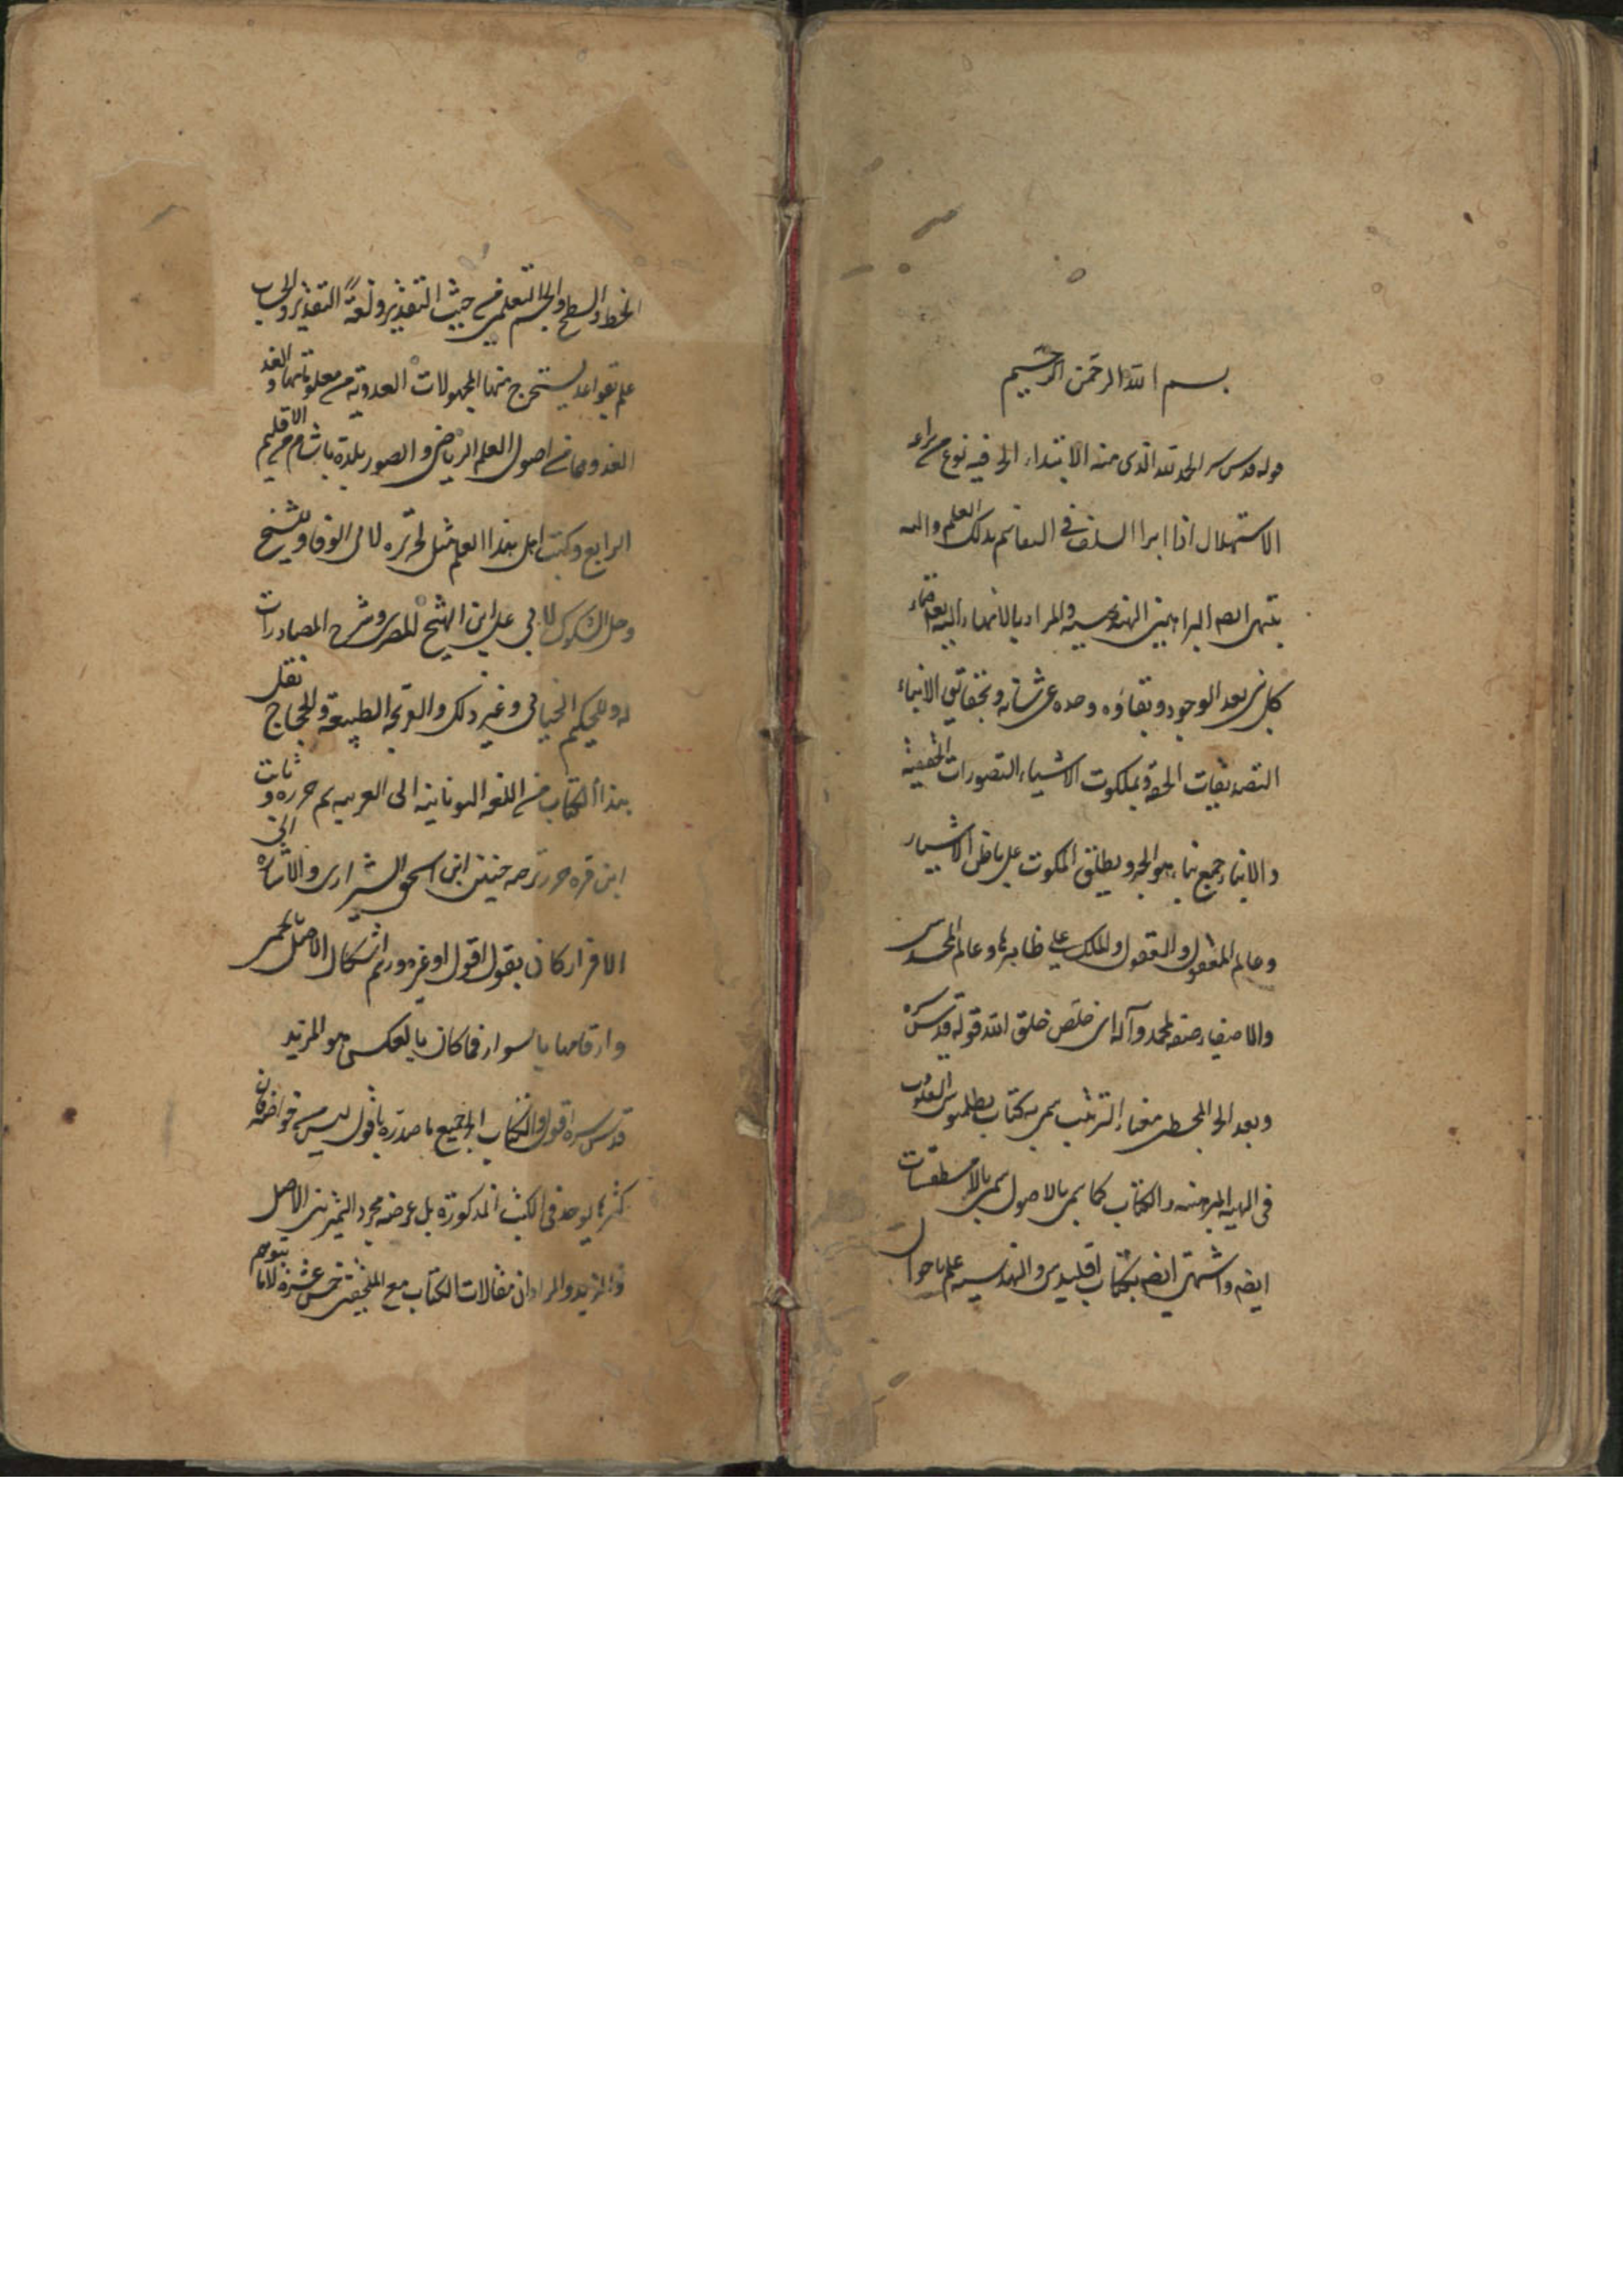 بسم الله الرحمن الرحيم
قوله قدس سره الحمد لله الذى منه الابتداء الخ فيه نوع من براعه
الاستهلال اذا ابرا السلف فى التفاسم بذلك العلم واليه
ينتهى ايصه البراهين الهندسيه والمراد بالانتهاء اليه انقضاء
كل شى بعد الوجود وبقاؤه وحده عز شانه وبحقايق الانباء
التصديقات الحقه وبملكوت الاشياء التصورات الحقيقيه
والانباء جمع نباء هو الخبر ويطلق الملكوت على باطن الاشياء
وعالم المعقول والعقول والملك على ظاهرها وعالم المحسوس
والاصفياء صفه لمحمد وآله اى خلص خلق الله قوله قدس سره
وبعد الخ المجسطى معناه الترتيب سمى به كتاب بطلميوس
فى الهيئه المبرهنه والكتاب كما سمى بالاصول سمى بالاسطقسات
ايضه واشتهر ايضه بكتاب اقليدس والهندسيه علم باحوال
الخط والسطح والجسم التعليمى من حيث التقدير ولغة التقدير والحساب
علم بقواعد يستخرج منها المجهولات العدديه من معلوماتها والعد
العد وهما من اصول العلم الرياضى والصور بلده بالشام من الاقليم
الرابع وكتب اهل هذا العلم مثل تحريره لابى الوفا وللشيخ
وحل الشكوك لابى على ابن الهيثم المصرى وشرح المصادرات
له وللحكيم الخيامى وغير ذلك والقريحه الطبيعه وللحجاج نقل
هذا الكتاب من اللغه اليونانيه الى العربيه ثم حرره وثابت
ابن قره حرر ترجمه حنين ابن اسحق الشرارى والاشاره الى
الافراز كان بقول اقول او غيره ورسم اشكال الاصل بالحمره
وارقامها بالسواد فما كان بالعكس هو المزيد
قدس سره اقول والكتاب الخ جميع ما صدره باقول ليس من خواصه فان
كثيرا يوجد فى الكتب المذكوره بل غرضه مجرد التميز بين الاصل
والمزيد والمراد ان مقالات الكتاب مع الملحقتين خمس عشره لا ما يتوهم